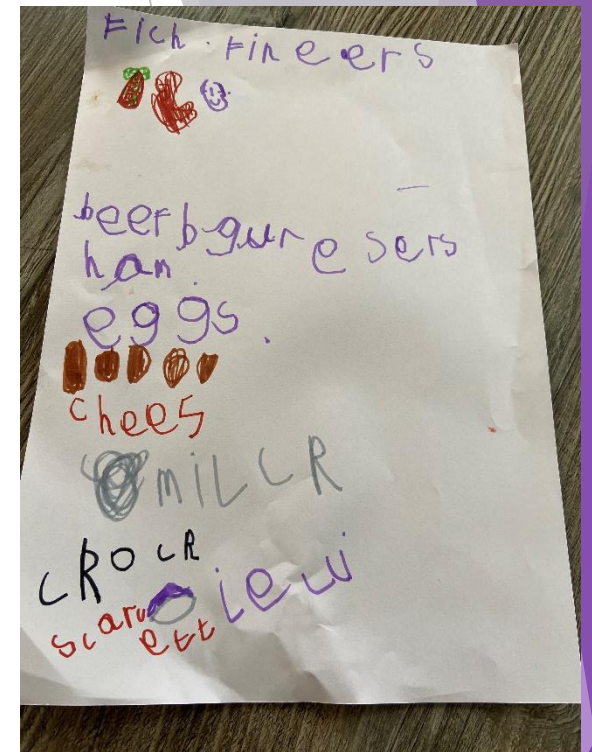 Fich. Fineers
beefbgur e sers
han.
eggs.
chees
miLcR
cRocR
iew
scaru
ett